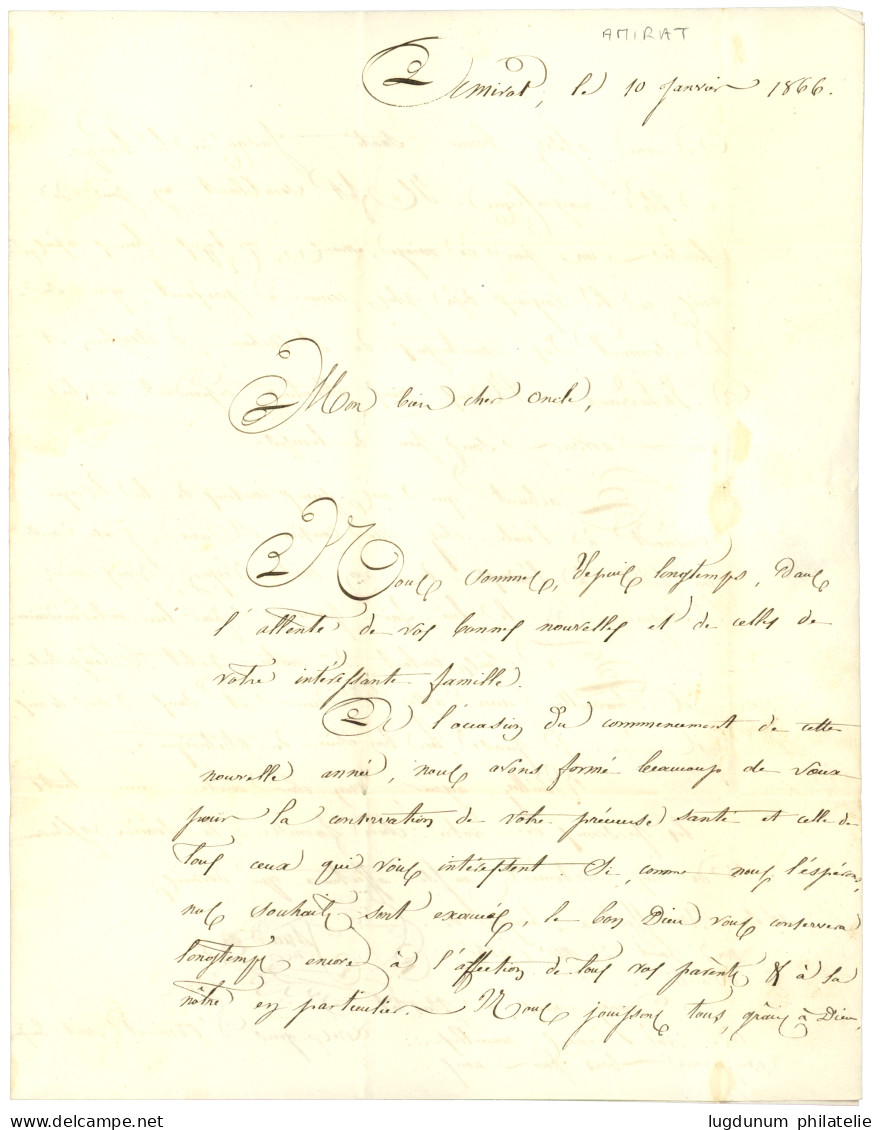 AMIRAT
Amirat, le 10 Janvier 1866.
Mon bien cher Oncle,
Nous sommes, depuis longtemps, dans
l'attente de vos bonnes nouvelles et de celles de
votre intéressante famille.
A l'occasion du commencement de cette
nouvelle année, nous avons formé beaucoup de vœux
pour la conservation de votre précieuse santé et celle de
tous ceux qui vous intéressent. Si, comme nous l'espérons,
nos souhaits sont exaucés, le bon Dieu vous conservera
longtemps encore à l'affection de tous vos parents & à la
nôtre en particulier. Nous jouissons tous, grâces à Dieu,
delcampe.net
lugdunum philatelie